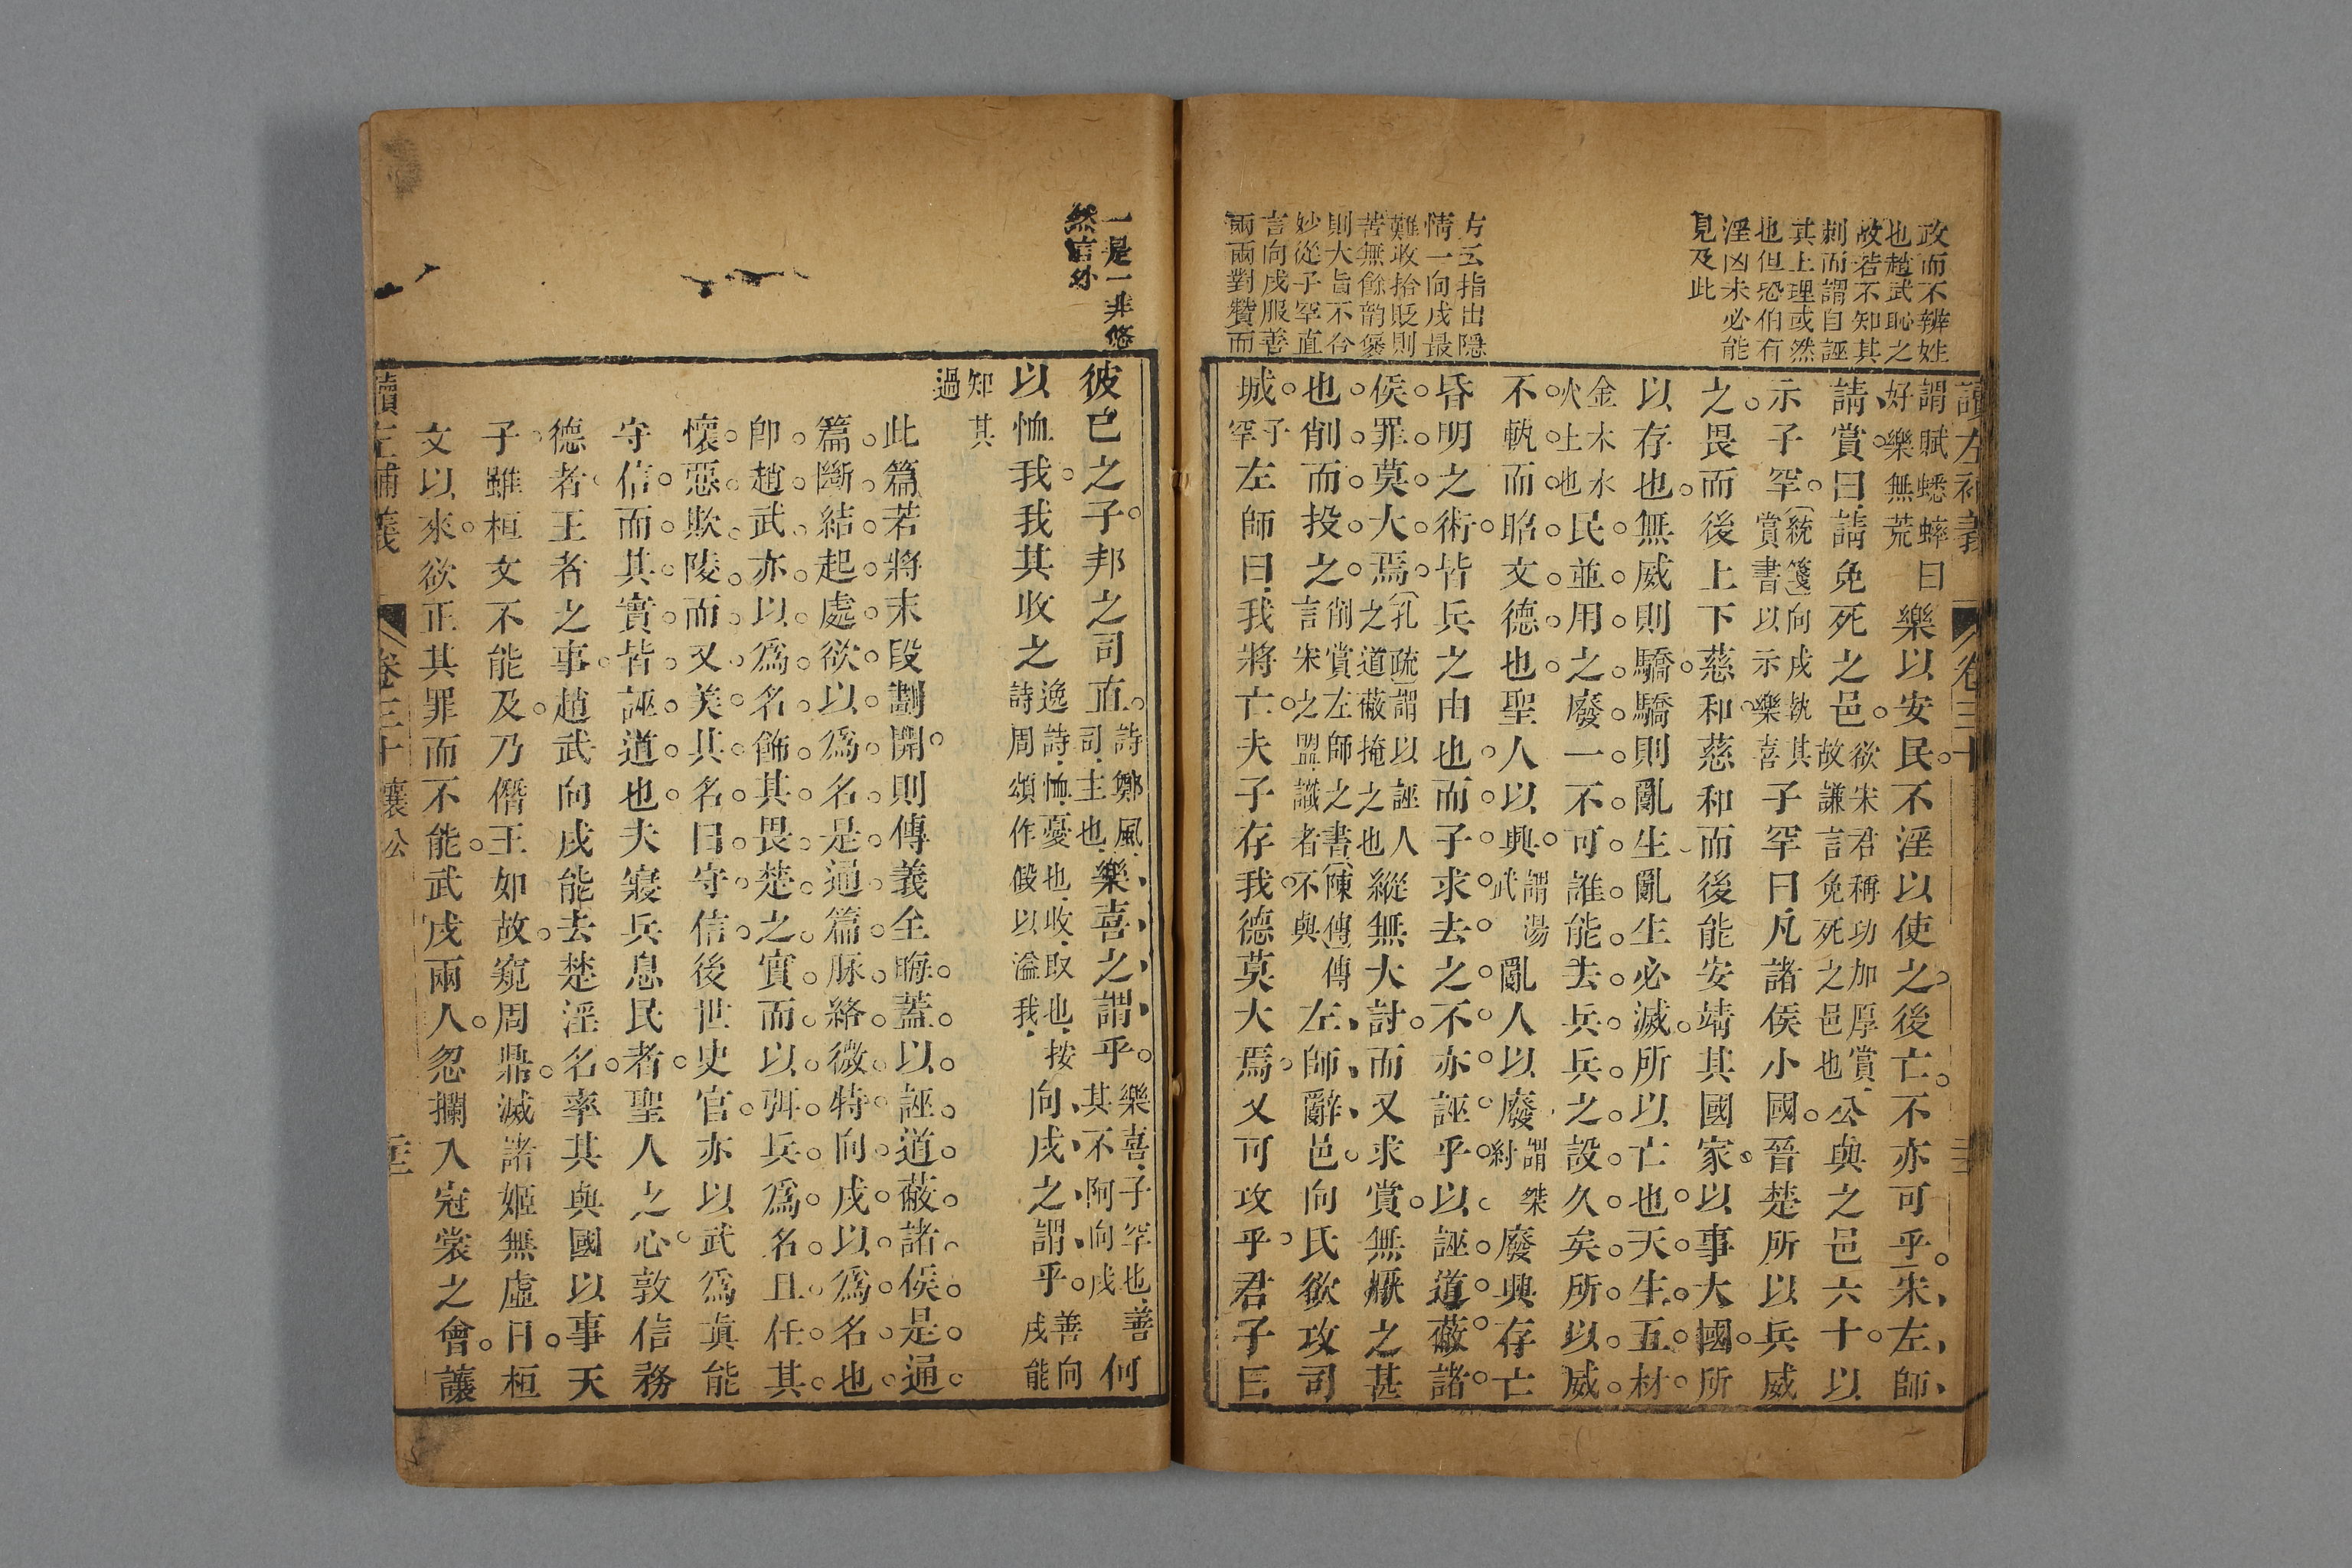 政而不辨姓
也趙武恥之
故若不知其
刺而謂自誣
其上理或然
也但恐伯有
淫凶未必能
見及此
方云指出隱
情一向戌最
難收拾貶則
苦無餘韵褒
則大旨不合
妙從子罕直
言向戌服善
兩兩對贊而
讀左補義 卷三十 三
謂賦蟋蟀曰好樂無荒樂以安民。不淫以使之後亡。不亦可乎。宋左師
請賞。曰請免死之邑。欲宋君稱功加厚賞故謙言免死之邑也公與之邑六十。以
示子罕。(統箋)向戌執其賞書以示樂喜子罕曰凡諸侯小國。晉楚所以兵威
之。畏而後上下慈和。慈和而後能安靖其國家。以事大國。所
以存也。無威則驕。驕則亂生亂生必滅。所以亡也。天生五材。
金木水火土也民並用之。廢一不可。誰能去兵。兵之設久矣。所以威
不軌而昭文德也。聖人以興。謂湯武亂人以廢謂桀紂廢興存亡
昏明之術。皆兵之由也。而子求去之。不亦誣乎。以誣道蔽諸
侯。罪莫大焉。(孔疏)謂以誣人之道蔽掩之也縱無大討。而又求賞。無厭之甚
也。削而投之。削賞左師之書(陳傳)傳言宋之盟譏者不與左師辭邑。向氏欲攻司
城。子罕左師曰我將亡。夫子存我。德莫大焉。又可攻乎。君子曰
一是一非悠
然言外
彼己之子。邦之司直。詩鄭風司主也樂喜之謂乎。樂喜子罕也善其不阿向戌何
以恤我。我其收之逸詩恤憂也收取也按詩周頌作假以溢我向戌之謂乎。善向戌能
知其過
此篇若將末段劃開。則傳義全晦。蓋以誣道蔽諸侯。是通
篇斷結起處。欲以為名。是通篇脉絡。微特向戌以為名也。
卽趙武亦以為名。飾其畏楚之實。而以弭兵為名。且任其
懷惡欺陵。而又美其名曰守信。後世史官。亦以武為眞能
守信。而其實皆誣道也。夫寢兵息民者。聖人之心。敦信務
德者。王者之事。趙武向戌能去楚淫名。率其與國以事天
子。雖桓文不能及。乃僭王如故。窺周鼎。滅諸姬無虛日。桓
文以來。欲正其罪而不能。武戌兩人。忽攔入冠裳之會。讓
讀左補義 卷三十 襄公